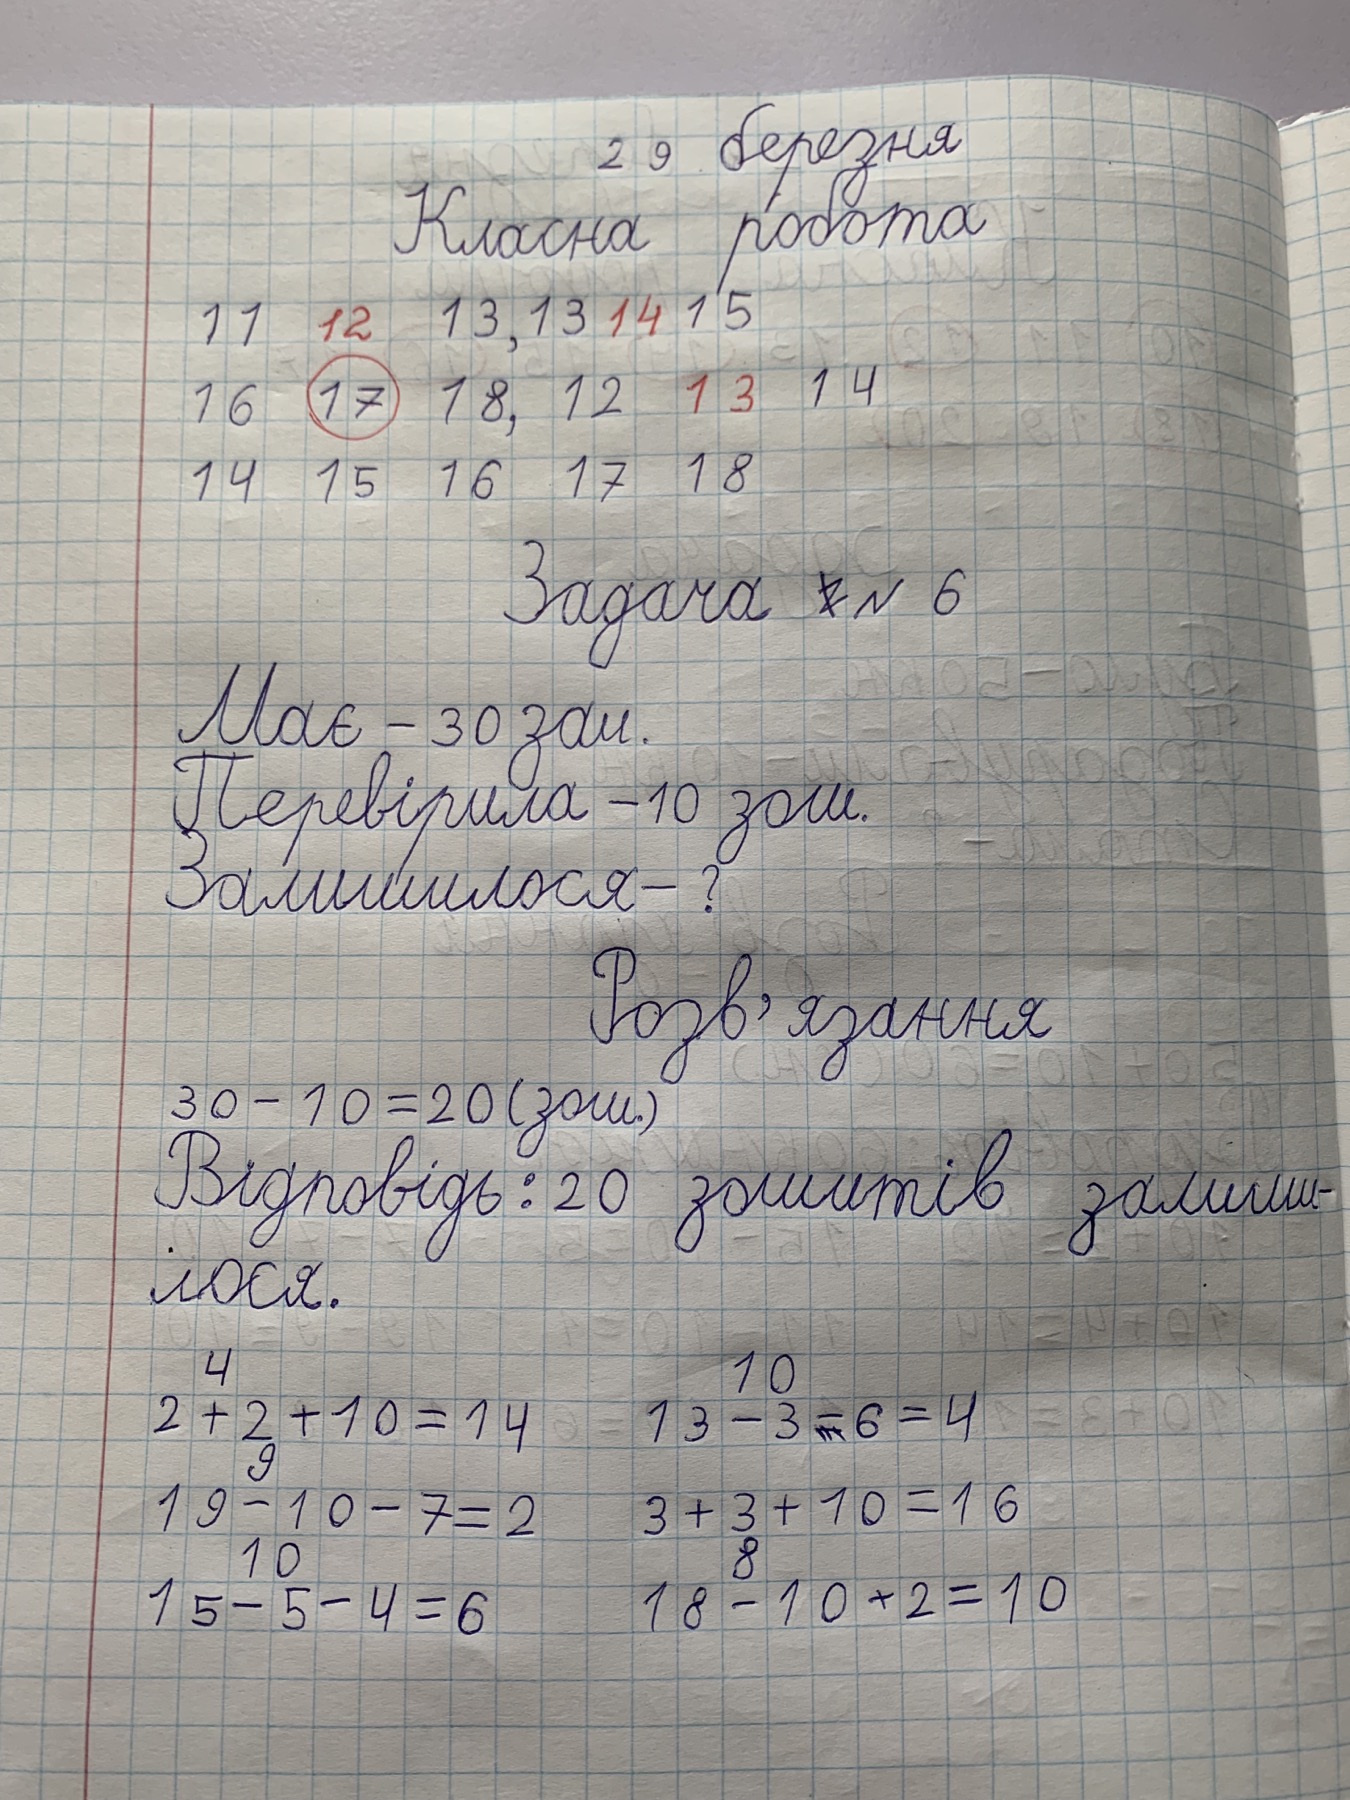 29 березня
Класна робота
11 12 13, 13 14 15
16 17 18, 12 13 14
14 15 16 17 18
Задача № 6
Має – 30 зош.
Перевірила – 10 зош.
Залишилося – ?
Розв'язання
30 – 10 = 20 (зош.)
Відповідь: 20 зошитів залиши-
лося.
4 10
2 + 2 + 10 = 14 13 – 3 – 6 = 4
9
19 – 10 – 7 = 2 3 + 3 + 10 = 16
10 8
15 – 5 – 4 = 6 18 – 10 + 2 = 10